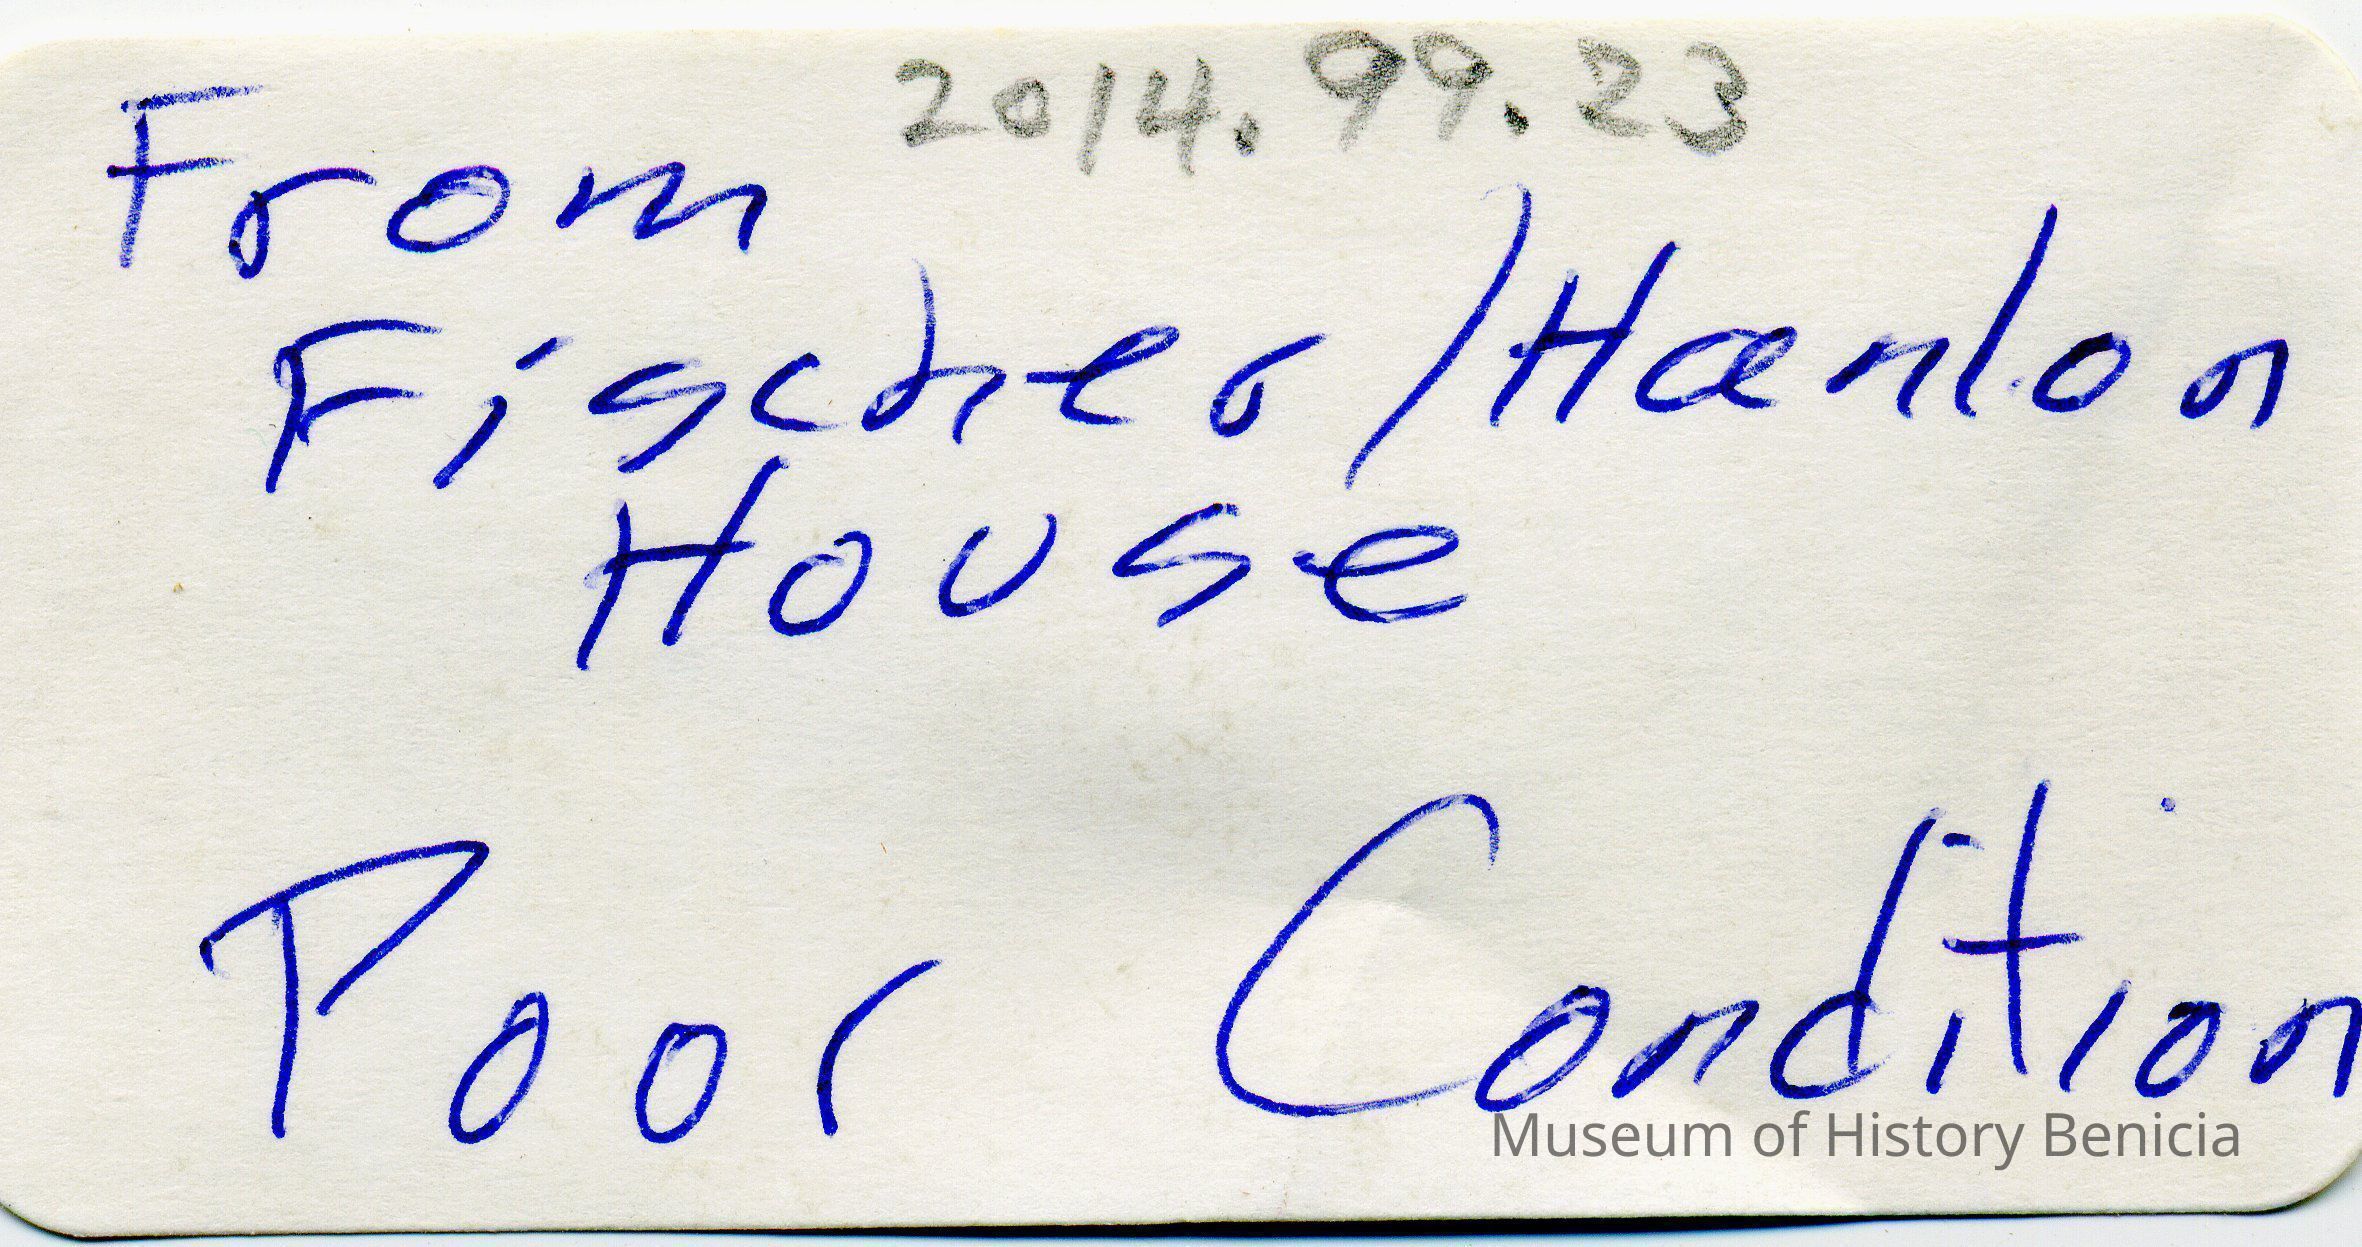 2014.99.23
From
Fischer/Hanlon
House
Poor Condition
Museum of History Benicia